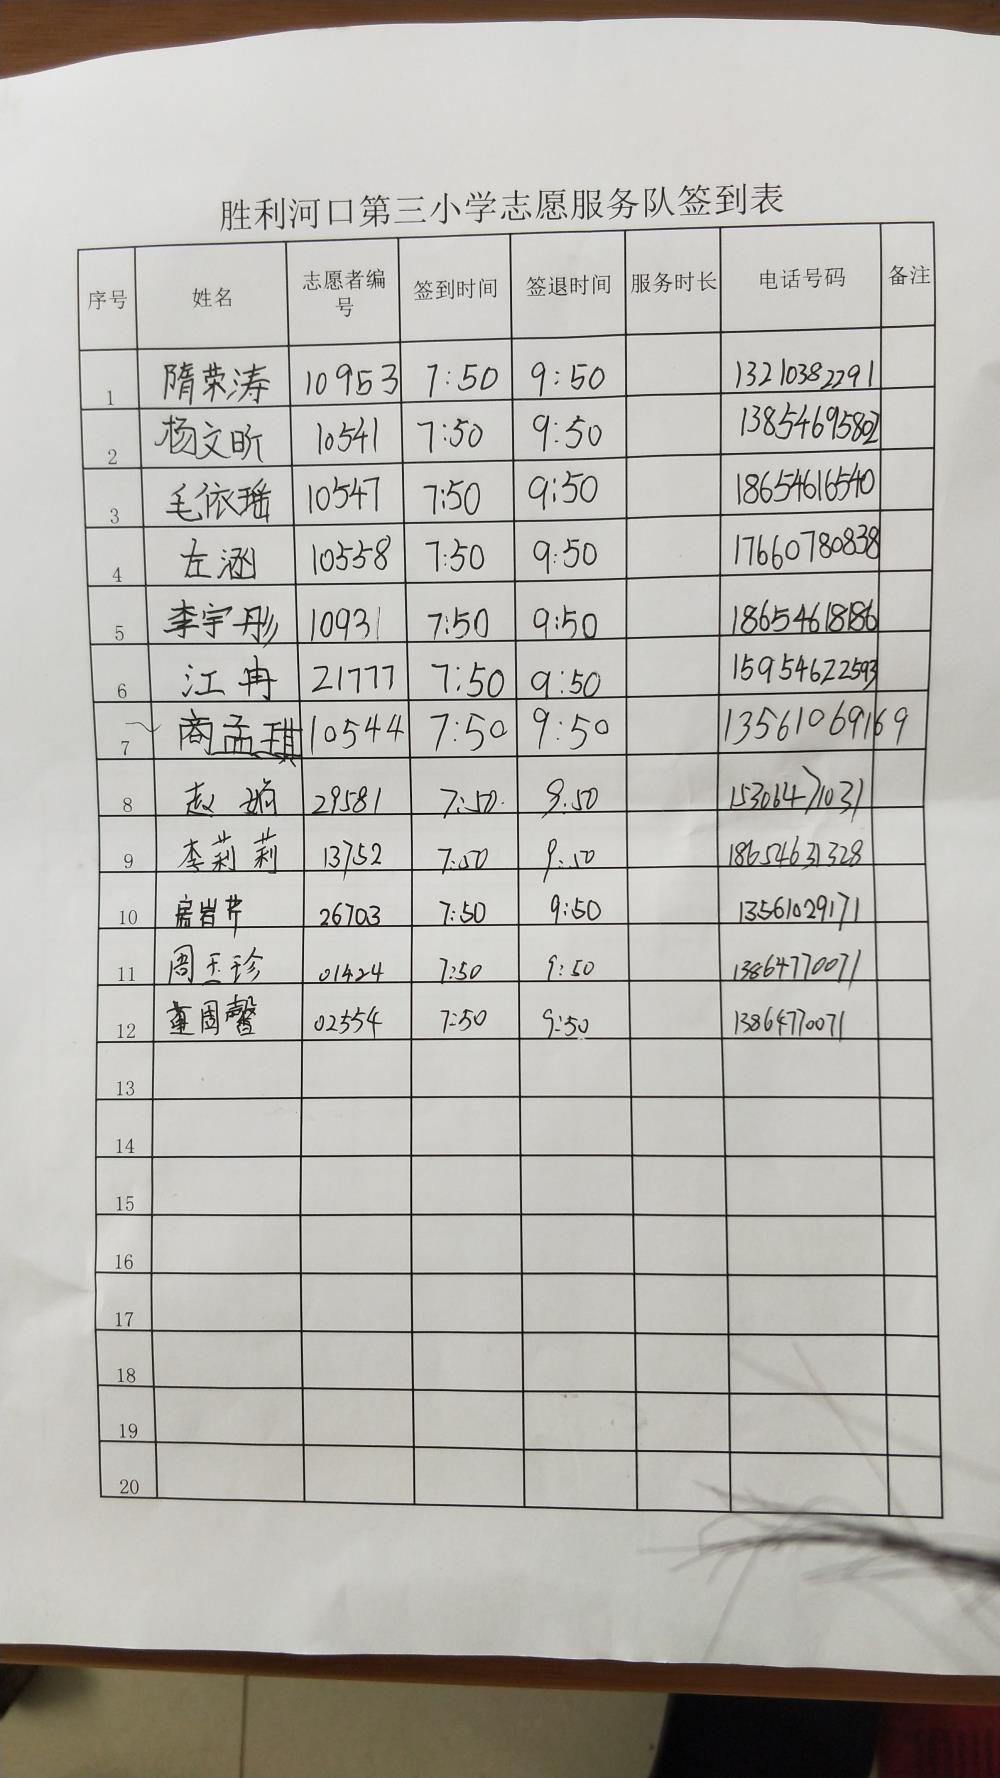 胜利河口第三小学志愿服务队签到表
序号 姓名 志愿者编号 签到时间 签退时间 服务时长 电话号码 备注
1 隋荣涛 10953 7:50 9:50 13210382291
2 杨文昕 10541 7:50 9:50 13854695802
3 毛依瑶 10547 7:50 9:50 18654616540
4 左涵 10558 7:50 9:50 17660780838
5 李宇彤 10931 7:50 9:50 18654618186
6 江冉 21777 7:50 9:50 15954622593
7 商孟琪 10544 7:50 9:50 13561069169
8 赵 29581 7:50 9:50 15306471031
9 李莉莉 13752 7:50 9:50 18654631328
10 房岩芹 26703 7:50 9:50 13561029171
11 周玉珍 01424 7:50 9:50 13864770071
12 董周馨 02554 7:50 9:50 13864770071
13
14
15
16
17
18
19
20